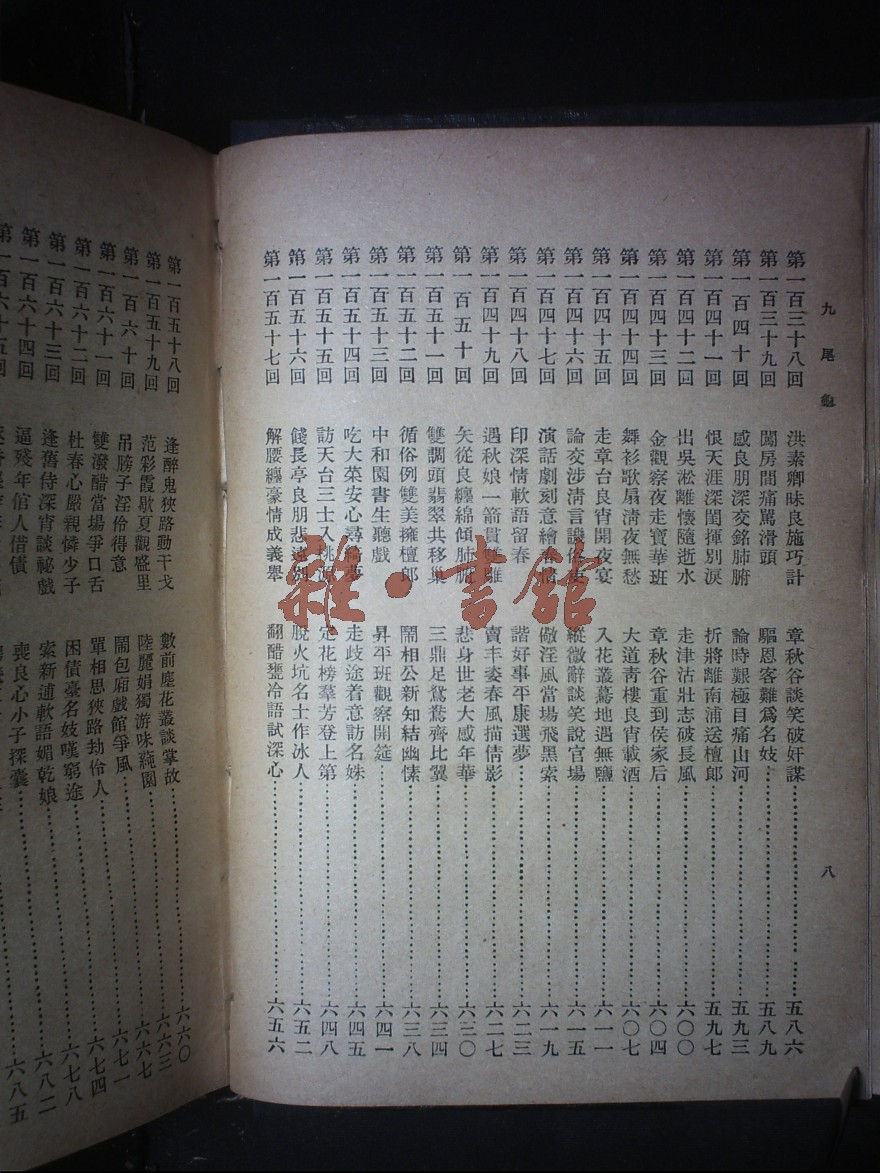 九尾龜
第一百三十八回 洪素卿昧良施巧計 章秋谷談笑破奸謀 五八六
第一百三十九回 鬧房間痛罵滑頭 驅恩客難爲名妓 五八九
第一百四十回 感良朋深交銘肺腑 論時艱極目痛山河 五九三
第一百四十一回 恨天涯深閨揮別淚 折將離南浦送檀郎 五九七
第一百四十二回 出吳淞離懷隨逝水 走津沽壯志破長風 六〇〇
第一百四十三回 金觀察夜走寶華班 章秋谷重到侯家后 六〇四
第一百四十四回 舞衫歌扇淸夜無愁 大道靑樓良宵載酒 六〇七
第一百四十五回 走章台良宵開夜宴 入花叢驀地遇無鹽 六一一
第一百四十六回 論交涉淸言譏俗吏 縱微辭談笑說官場 六一五
第一百四十七回 演話劇刻意繪春情 儆淫風當場飛黑索 六一九
第一百四十八回 印深情軟語留春 諧好事平康選夢 六二三
第一百四十九回 遇秋娘一箭貫雙雕 賣丰姿春風描倩影 六二七
第一百五十回 矢從良纏綿傾肺腑 悲身世老大感年華 六三〇
第一百五十一回 雙調頭翡翠共移巢 三鼎足鴛鴦齊比翼 六三四
第一百五十二回 循俗例雙美擁檀郎 鬧相公新知結幽愫 六三八
第一百五十三回 中和園書生聽戲 昇平班觀察開筵 六四一
第一百五十四回 吃大菜安心尋綺夢 走歧途着意訪名姝 六四五
第一百五十五回 訪天台三士入桃源 定花榜羣芳登上第 六四八
第一百五十六回 餞長亭良朋悲遠別 脫火坑名士作冰人 六五二
第一百五十七回 解腰纏豪情成義舉 翻醋甕冷語試深心 六五六
八
雜·書館
第一百五十八回 逢醉鬼狹路動干戈 數前塵花叢談掌故 六六〇
第一百五十九回 范彩霞歇夏觀盛里 陸麗娟獨游味蒓園 六六三
第一百六十回 吊膀子淫伶得意 鬧包廂戲館爭風 六六七
第一百六十一回 雙潑醋當場爭口舌 單相思狹路劫伶人 六七一
第一百六十二回 杜春心嚴親憐少子 困債臺名妓嘆窮途 六七四
第一百六十三回 逢舊侍深宵談祕戲 索新逋軟語媚乾娘 六七八
第一百六十四回 逼殘年倌人借債 喪良心小子探囊 六八二
第一百六十五回 六八五